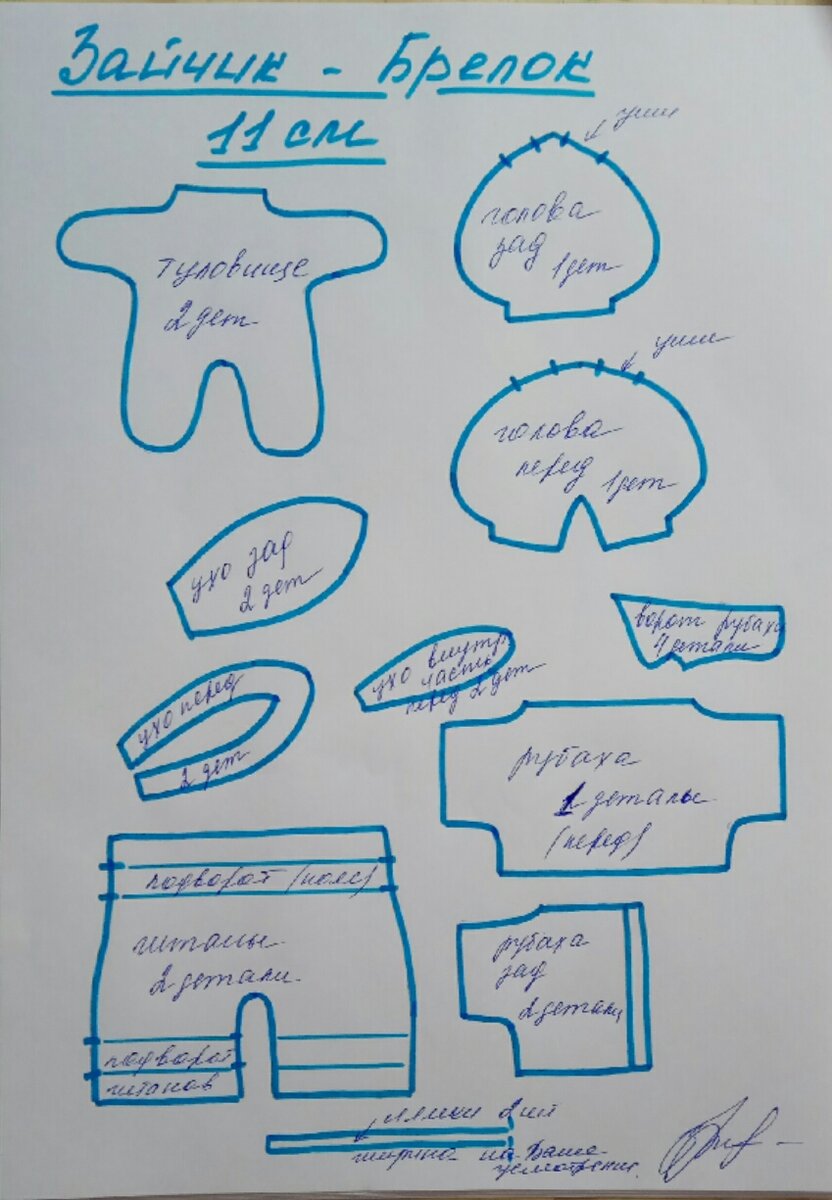 Зайчик - Брелок
11 см
уши
голова
зад
1дет
туловище
2 дет
уши
голова
перед
1дет
ухо зад
2 дет
ворот рубахи
4 детали
ухо внутр.
часть
перед 2 дет
ухо перед
2 дет
рубаха
1 деталь
(перед)
подворот (пояс)
штаны
2 детали
рубаха
зад
2 детали
подворот
штанов
лямки 2 шт
ширина на Ваше
усмотрение